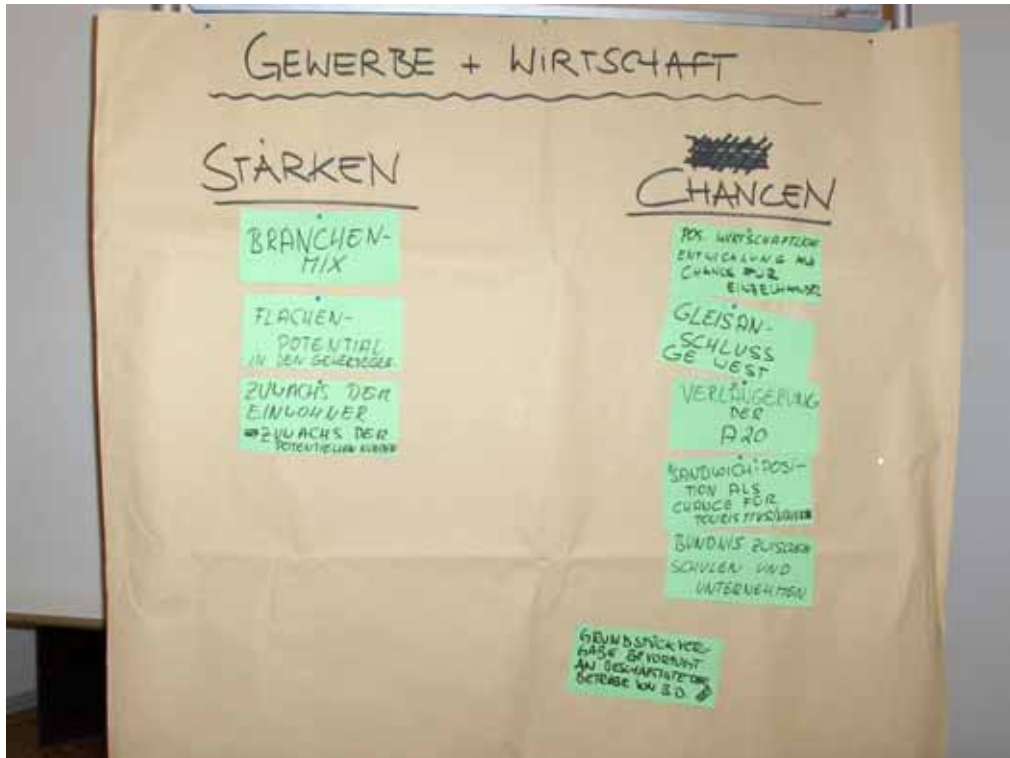 GEWERBE + WIRTSCHAFT
STÄRKEN
BRANCHEN-
MIX
FLÄCHEN-
POTENTIAL
IN DEN
ZUWACHS DER
EINWOHNER
ZUWACHS DER
POTENTIELLEN KUNDEN
CHANCEN
POS. WIRTSCHAFTLICHE
ENTWICKLUNG ALS
CHANCE FÜR
EINZELHANDEL
GLEISAN-
SCHLUSS
GE WEST
VERLÄNGERUNG
DER
A20
SANDWICH-POSI-
TION ALS
CHANCE FÜR
TOURISMUS/
BÜNDNIS ZWISCHEN
SCHULEN UND
UNTERNEHMEN
GRUNDSTÜCKVER-
GABE BEVORZUGT
AN BESCHÄFTIGTE DER
BETRIEBE